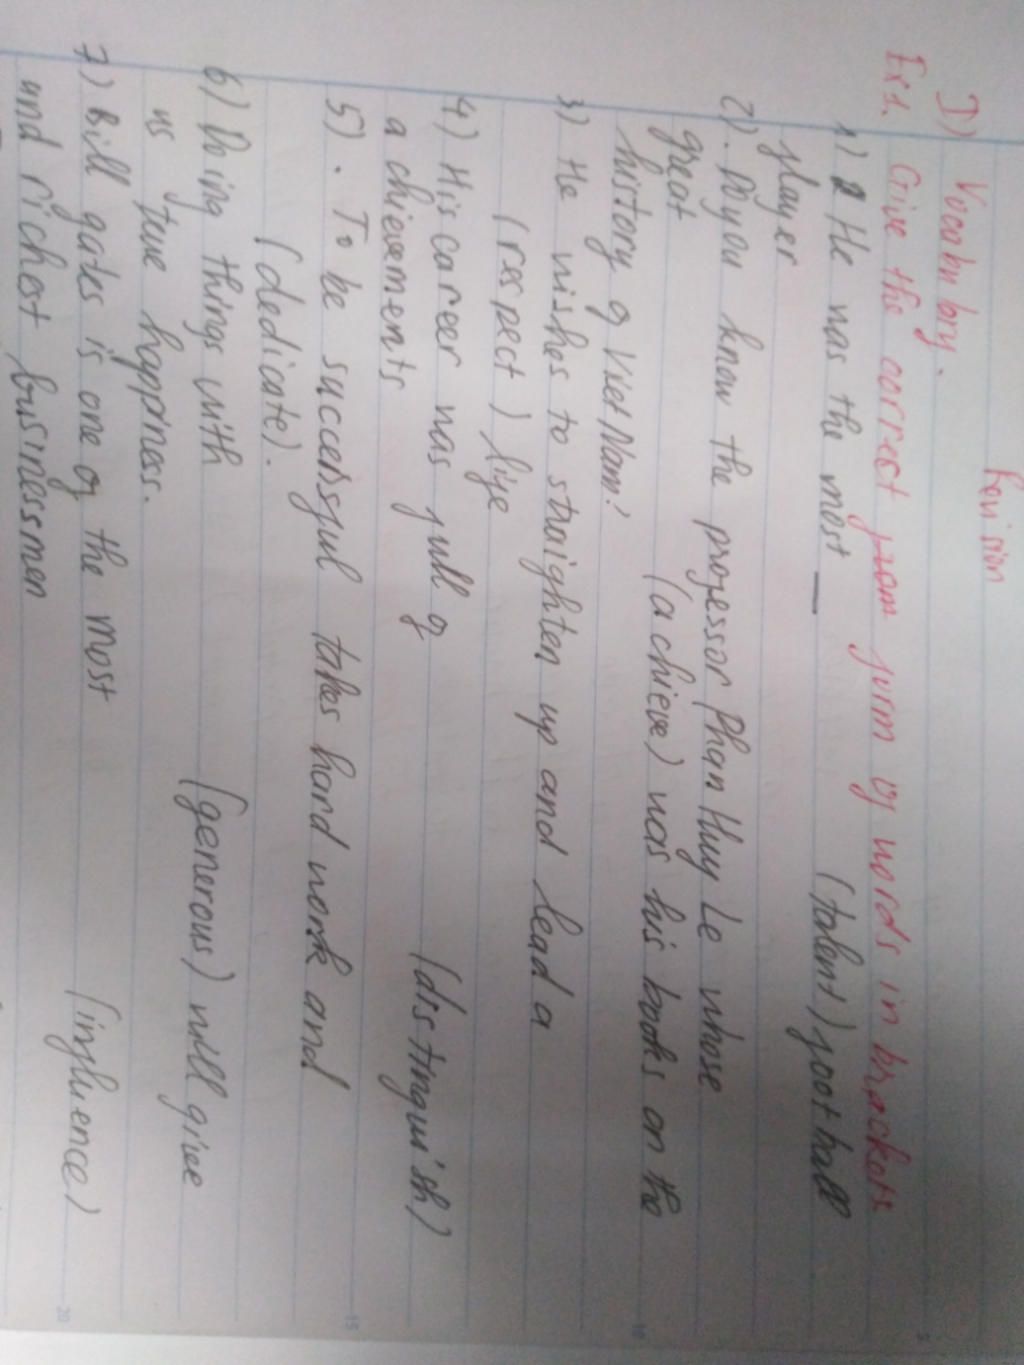 Revision
I) Vocabulary.
Ex1. Give the correct form of words in brackets
1) He was the most __ (talent) football
player
2). Do you know the professor Phan Huy Le whose
great (achieve) was his books on the
history of Viet Nam?
3) He wishes to straighten up and lead a
(respect) life
4) His career was full of (distinguish)
achievements
5). To be successful takes hard work and
(dedicate).
6) Doing things with (generous) will give
us true happiness.
7) Bill gates is one of the most (influence)
and richest businessmen
5
10
15
20